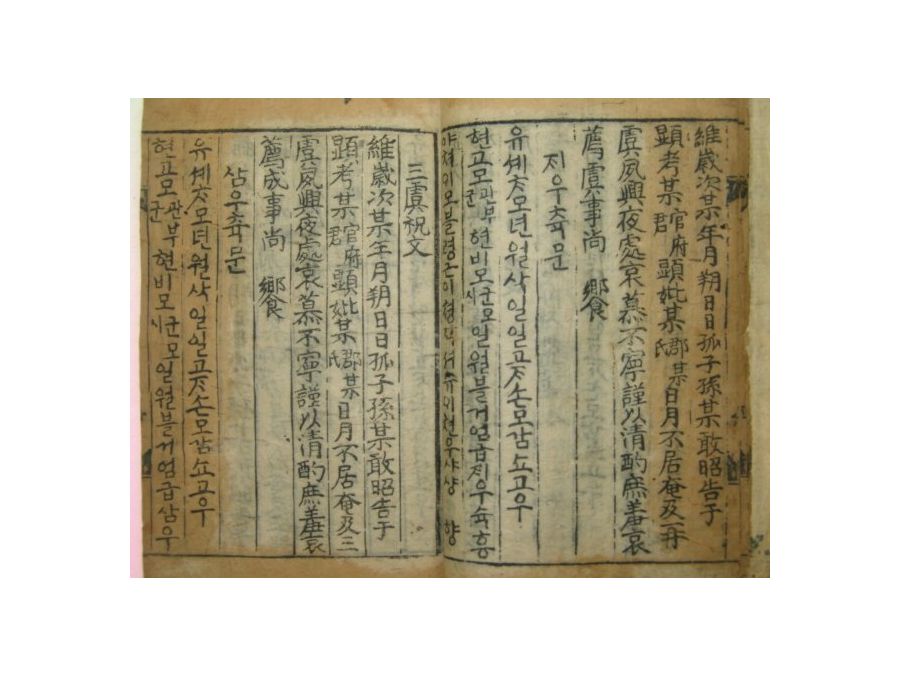 維歲次某年月朔日日孤子孫某敢昭告于
顯考某官府君顯妣某郡某氏日月不居奄及再
虞夙興夜處哀慕不寧謹以清酌庶羞哀
薦虞事尚 鄉食
지우츅문
유셰ᄎᆞ모년월삭일일고ᄌᆞ손모감쇼고우
현고모관부군현비모군모시일월블거엄급ᄌᆡ우슉흥
三虞祝文
維歲次某年月朔日日孤子孫某敢昭告于
顯考某官府君顯妣某郡某氏日月不居奄及三
虞夙興夜處哀慕不寧謹以清酌庶羞哀
薦成事尚 鄉食
삼우츅문
유셰ᄎᆞ모년월삭일일고ᄌᆞ손모감쇼고우
현고모관부군현비모군모시일월블거엄급삼우